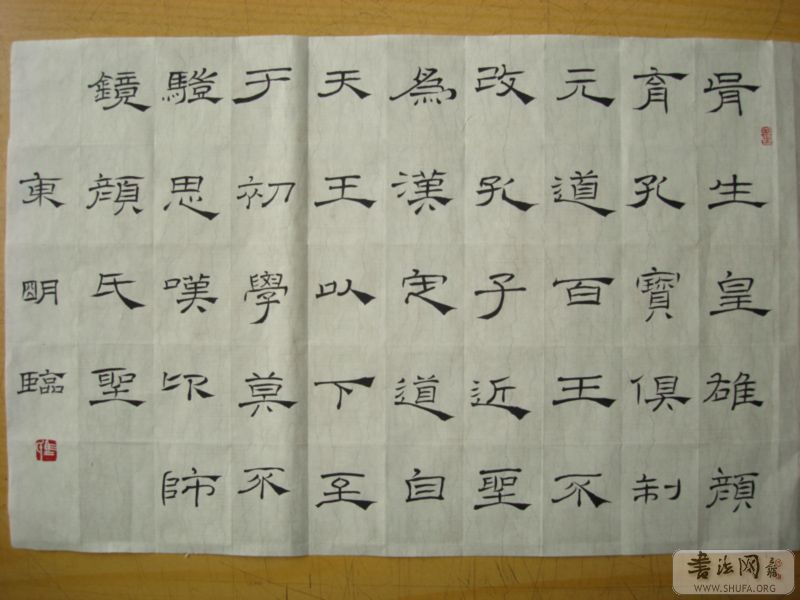 胥生皇雄顏
育孔寶俱制
元道百王不
改孔子近聖
為漢定道自
天王以下至
于初學莫不
驥思嘆卬師
鏡顏氏聖
東明臨
書法网
WWW.SHUFA.ORG